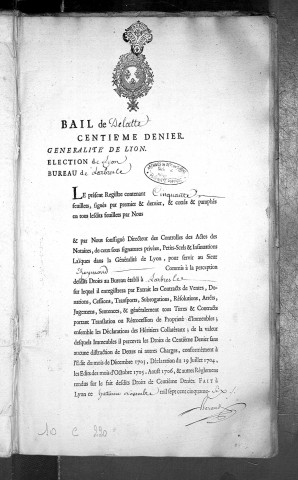 BAIL de Delatte
CENTIEME DENIER.
GENERALITÉ DE LYON.
ELECTION de Lyon
BUREAU de Larbresle
LE présent Registre contenant Cinquante
feuillets, signés par premier & dernier, & cottés & paraphés
en tous lesdits feuillets par Nous
& par Nous soussigné Directeur des Controlles des Actes des
Notaires, de ceux sous signatures privées, Petits-Scels & Insinuations
Laïques dans la Généralité de Lyon, pour servir au Sieur
Reymond Commis à la perception
desdits Droits au Bureau établi à Larbresle
sur lequel il enregistrera par Extrait les Contracts de Ventes, Donations,
Cessions, Transports, Subrogations, Résolutions, Arrêts,
Jugemens, Sentences, & généralement tous Titres & Contracts
portant Translation ou Rétrocession de Proprieté d'Immeubles ;
ensemble les Déclarations des Héritiers Collatéraux ; de la valeur
desquels Immeubles il percevra les Droits de Centième Denier sans
aucune distraction de Dettes ni autres Charges, conformément à
l'Edit du mois de Décembre 1703, Déclaration du 19 Juillet 1704,
les Edits des mois d'Octobre 1705, Aoust 1706, & autres Réglemens
rendus sur le fait desdits Droits de Centième Denier. FAIT à
Lyon ce novembre mil sept cens cinquante six
10 C 220